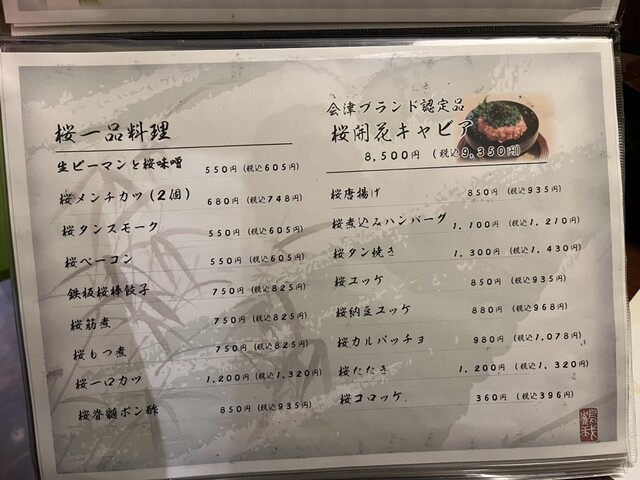 桜一品料理
生ピーマンと桜味噌 550円(税込605円)
桜メンチカツ(2個) 680円(税込748円)
桜タンスモーク 550円(税込605円)
桜ベーコン 550円(税込605円)
鉄板桜棒餃子 750円(税込825円)
桜筋煮 750円(税込825円)
桜もつ煮 750円(税込825円)
桜一口カツ 1,200円(税込1,320円)
桜脊髄ポン酢 850円(税込935円)
会津ブランド認定品
桜開花キャビア
8,500円 (税込9,350円)
桜唐揚げ 850円(税込935円)
桜煮込みハンバーグ 1,100円(税込1,210円)
桜タン焼き 1,300円(税込1,430円)
桜ユッケ 850円(税込935円)
桜納豆ユッケ 880円(税込968円)
桜カルパッチョ 980円(税込1,078円)
桜たたき 1,200円(税込1,320円)
桜コロッケ 360円(税込396円)